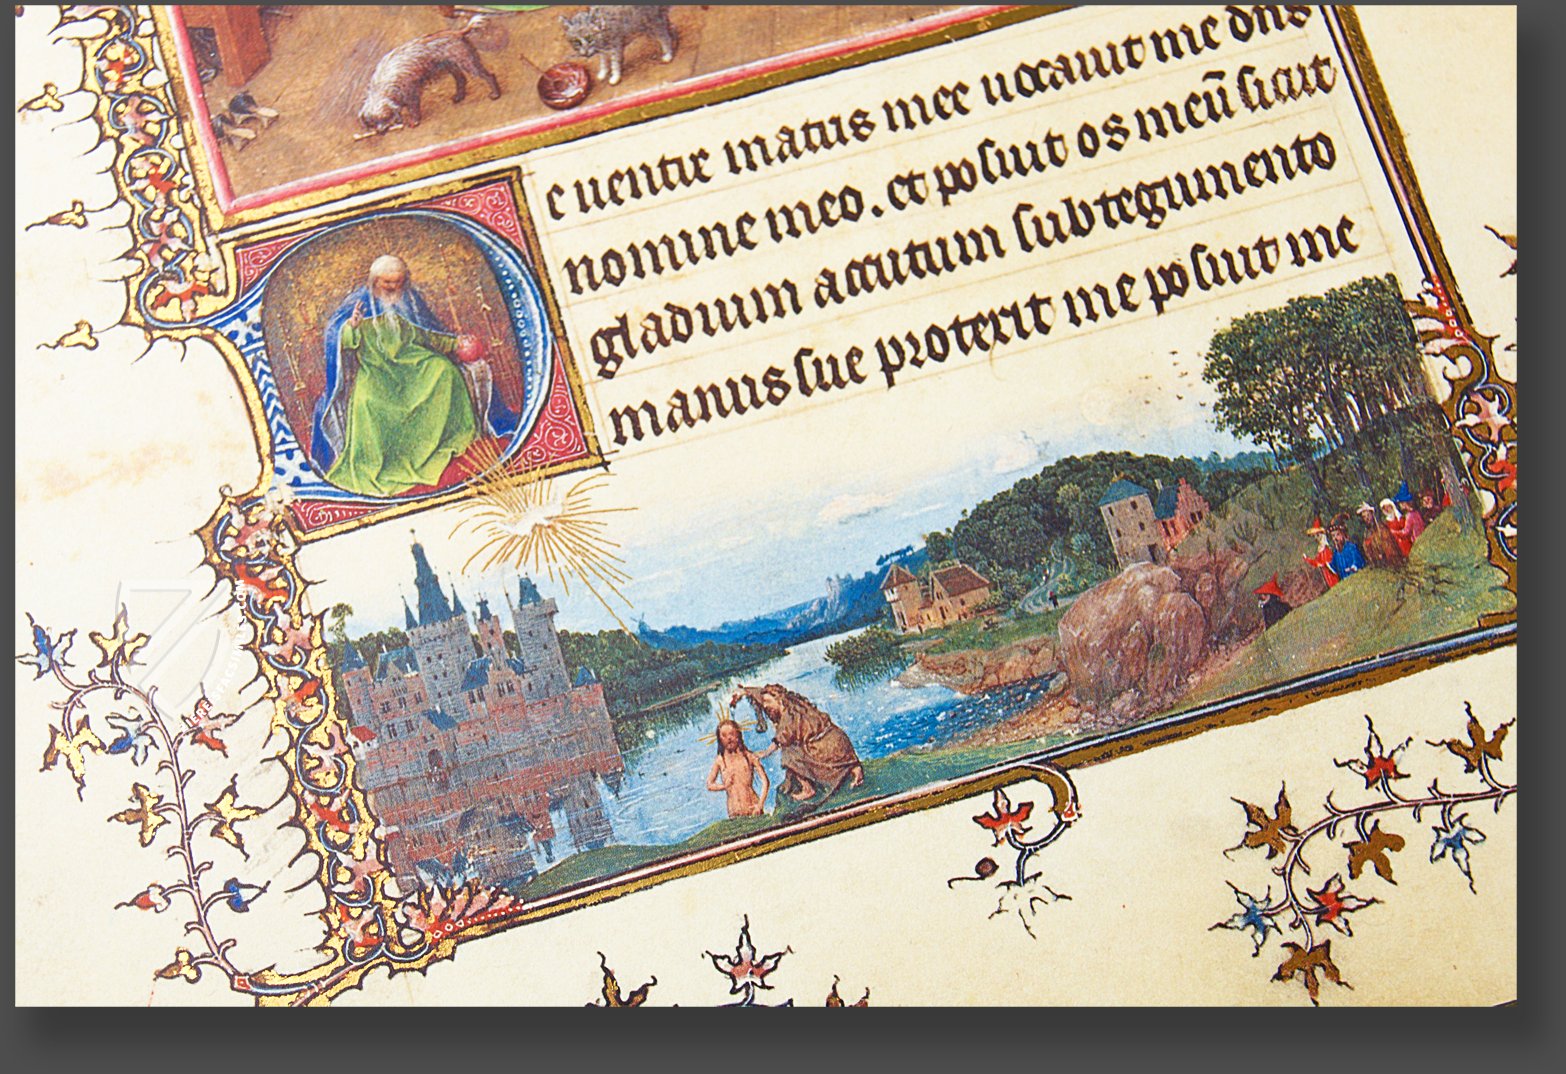 e uentre matris mee uocauit me dns
nomine meo. et posuit os meū sicut
gladium acutum sub tegumento
manus sue protexit me posuit me